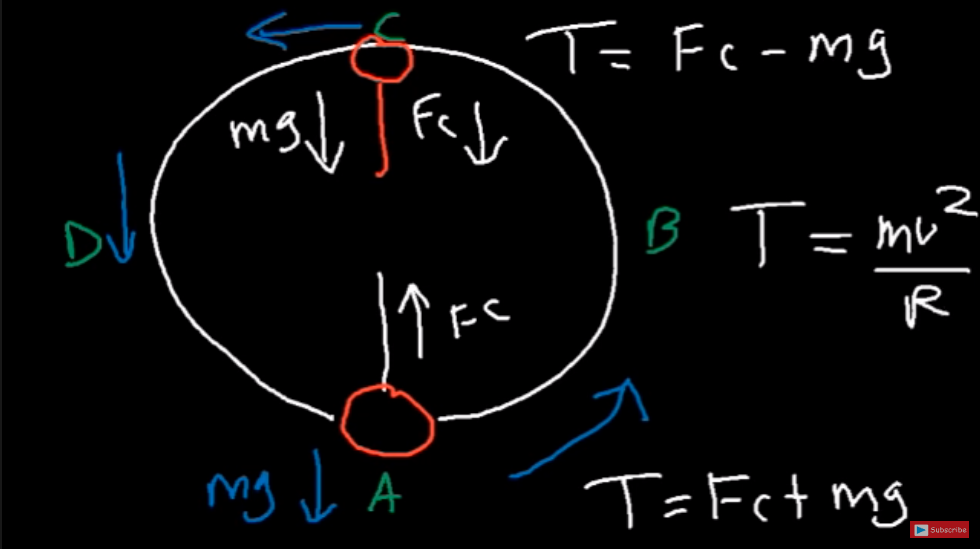 C
T = Fc - mg
mg↓ Fc↓
D
B
T = mv²/R
↑ Fc
mg↓ A
T = Fc + mg
Subscribe